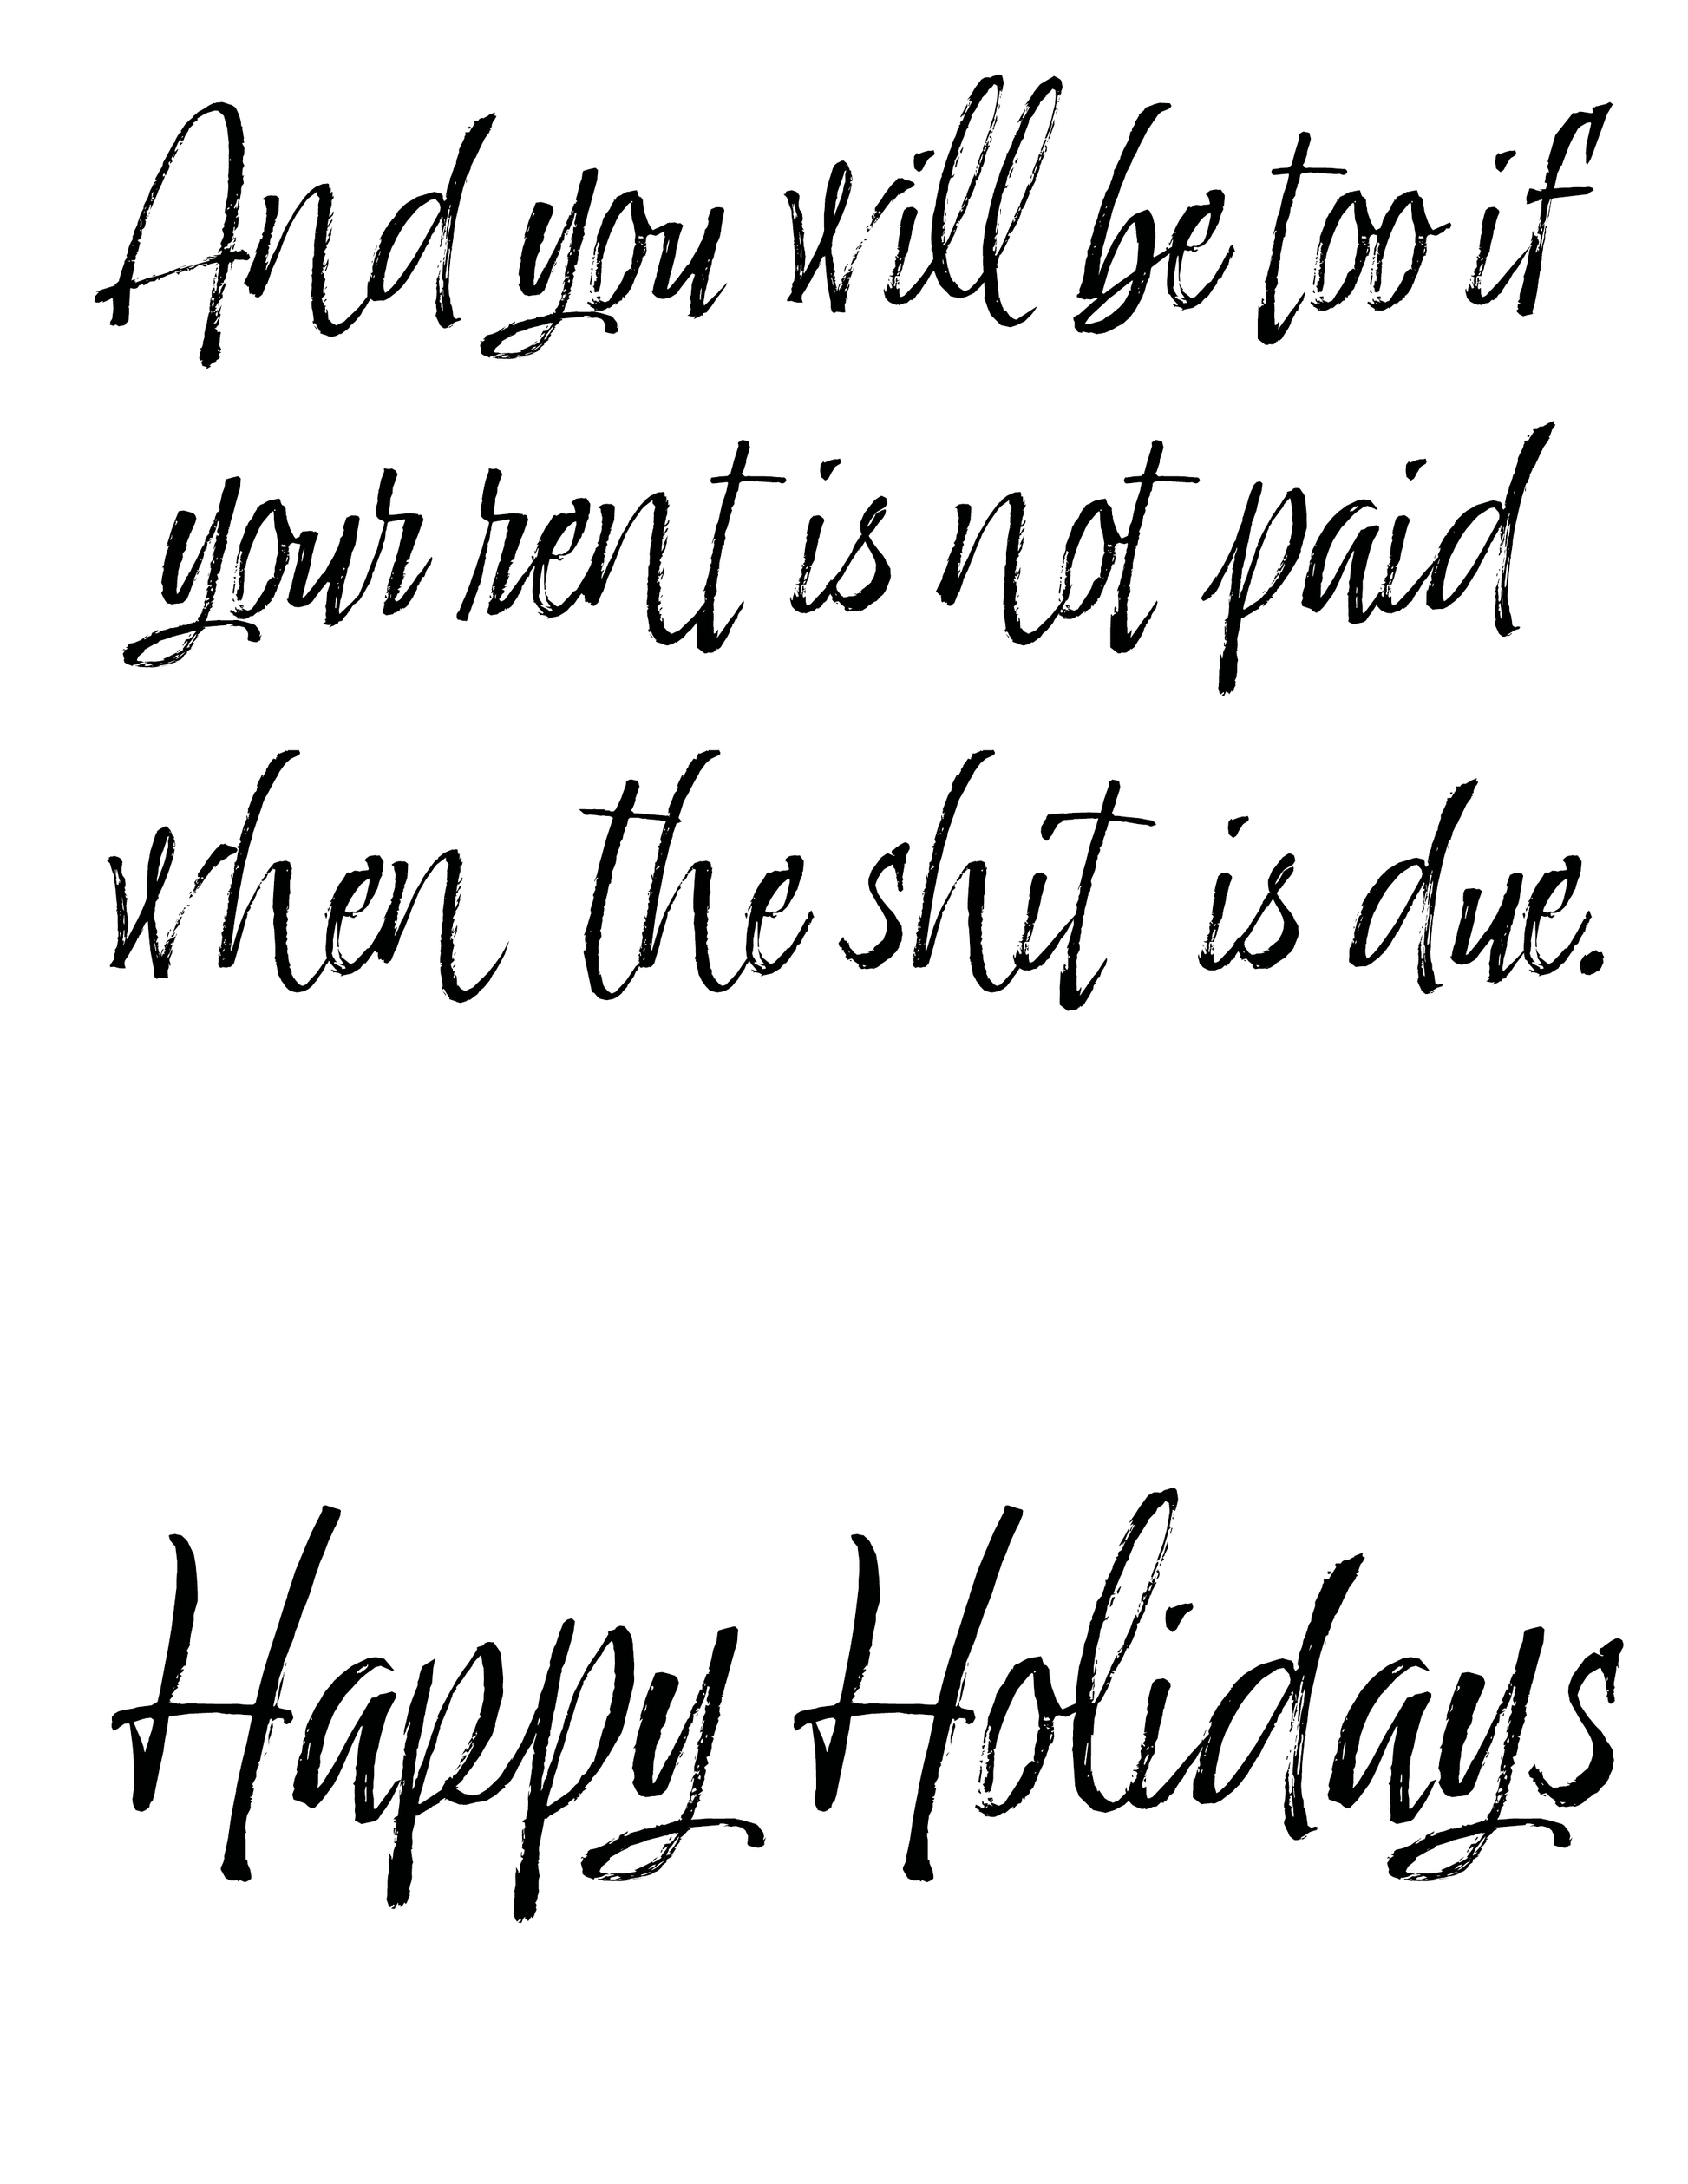 And you will be too if
your rent is not paid
when the shit is due.
Happy Holidays